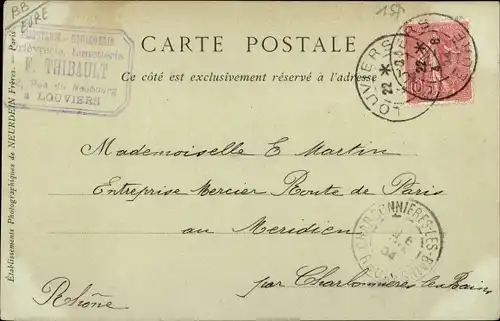 BB
EURE
155
HORLOGERIE - BIJOUTERIE
Orfèvrerie, Lunetterie
E. THIBAULT
Rue du Neubourg
à LOUVIERS
CARTE POSTALE
Ce côté est exclusivement réservé à l'adresse
LOUVIERS
22
LOUVIERS
22
EURE
10
Mademoiselle E Martin
Entreprise Mercier Route de Paris
au Meridien
par Charbonnières les Bains
Rhône
CHARBONNIERES-LES-BAINS
04
RHONE
Établissements Photographiques de NEURDEIN Frères. - Paris